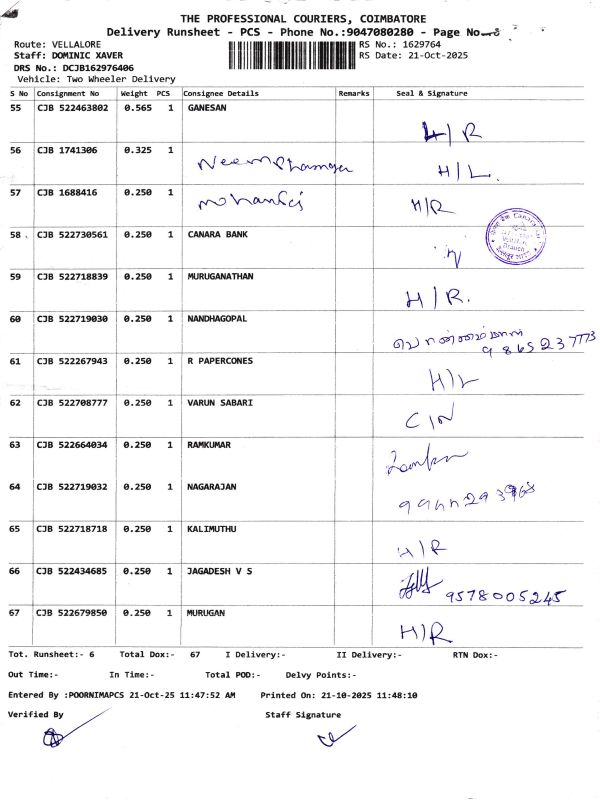 THE PROFESSIONAL COURIERS, COIMBATORE
Delivery Runsheet - PCS - Phone No.:9047080280 - Page No
Route: VELLALORE RS No.: 1629764
Staff: DOMINIC XAVER RS Date: 21-Oct-2025
DRS No.: DCJB162976406
Vehicle: Two Wheeler Delivery
S No Consignment No Weight PCS Consignee Details Remarks Seal & Signature
55 CJB 522463802 0.565 1 GANESAN H/R
56 CJB 1741306 0.325 1 H/L.
57 CJB 1688416 0.250 1 H/R
58 CJB 522730561 0.250 1 CANARA BANK
59 CJB 522718839 0.250 1 MURUGANATHAN H/R.
60 CJB 522719030 0.250 1 NANDHAGOPAL
61 CJB 522267943 0.250 1 R PAPERCONES H/L
62 CJB 522708777 0.250 1 VARUN SABARI
63 CJB 522664034 0.250 1 RAMKUMAR
64 CJB 522719032 0.250 1 NAGARAJAN
65 CJB 522718718 0.250 1 KALIMUTHU H/R
66 CJB 522434685 0.250 1 JAGADESH V S 9578005245
67 CJB 522679850 0.250 1 MURUGAN H/R
Tot. Runsheet:- 6 Total Dox:- 67 I Delivery:- II Delivery:- RTN Dox:-
Out Time:- In Time:- Total POD:- Delvy Points:-
Entered By :POORNIMAPCS 21-Oct-25 11:47:52 AM Printed On: 21-10-2025 11:48:10
Verified By Staff Signature